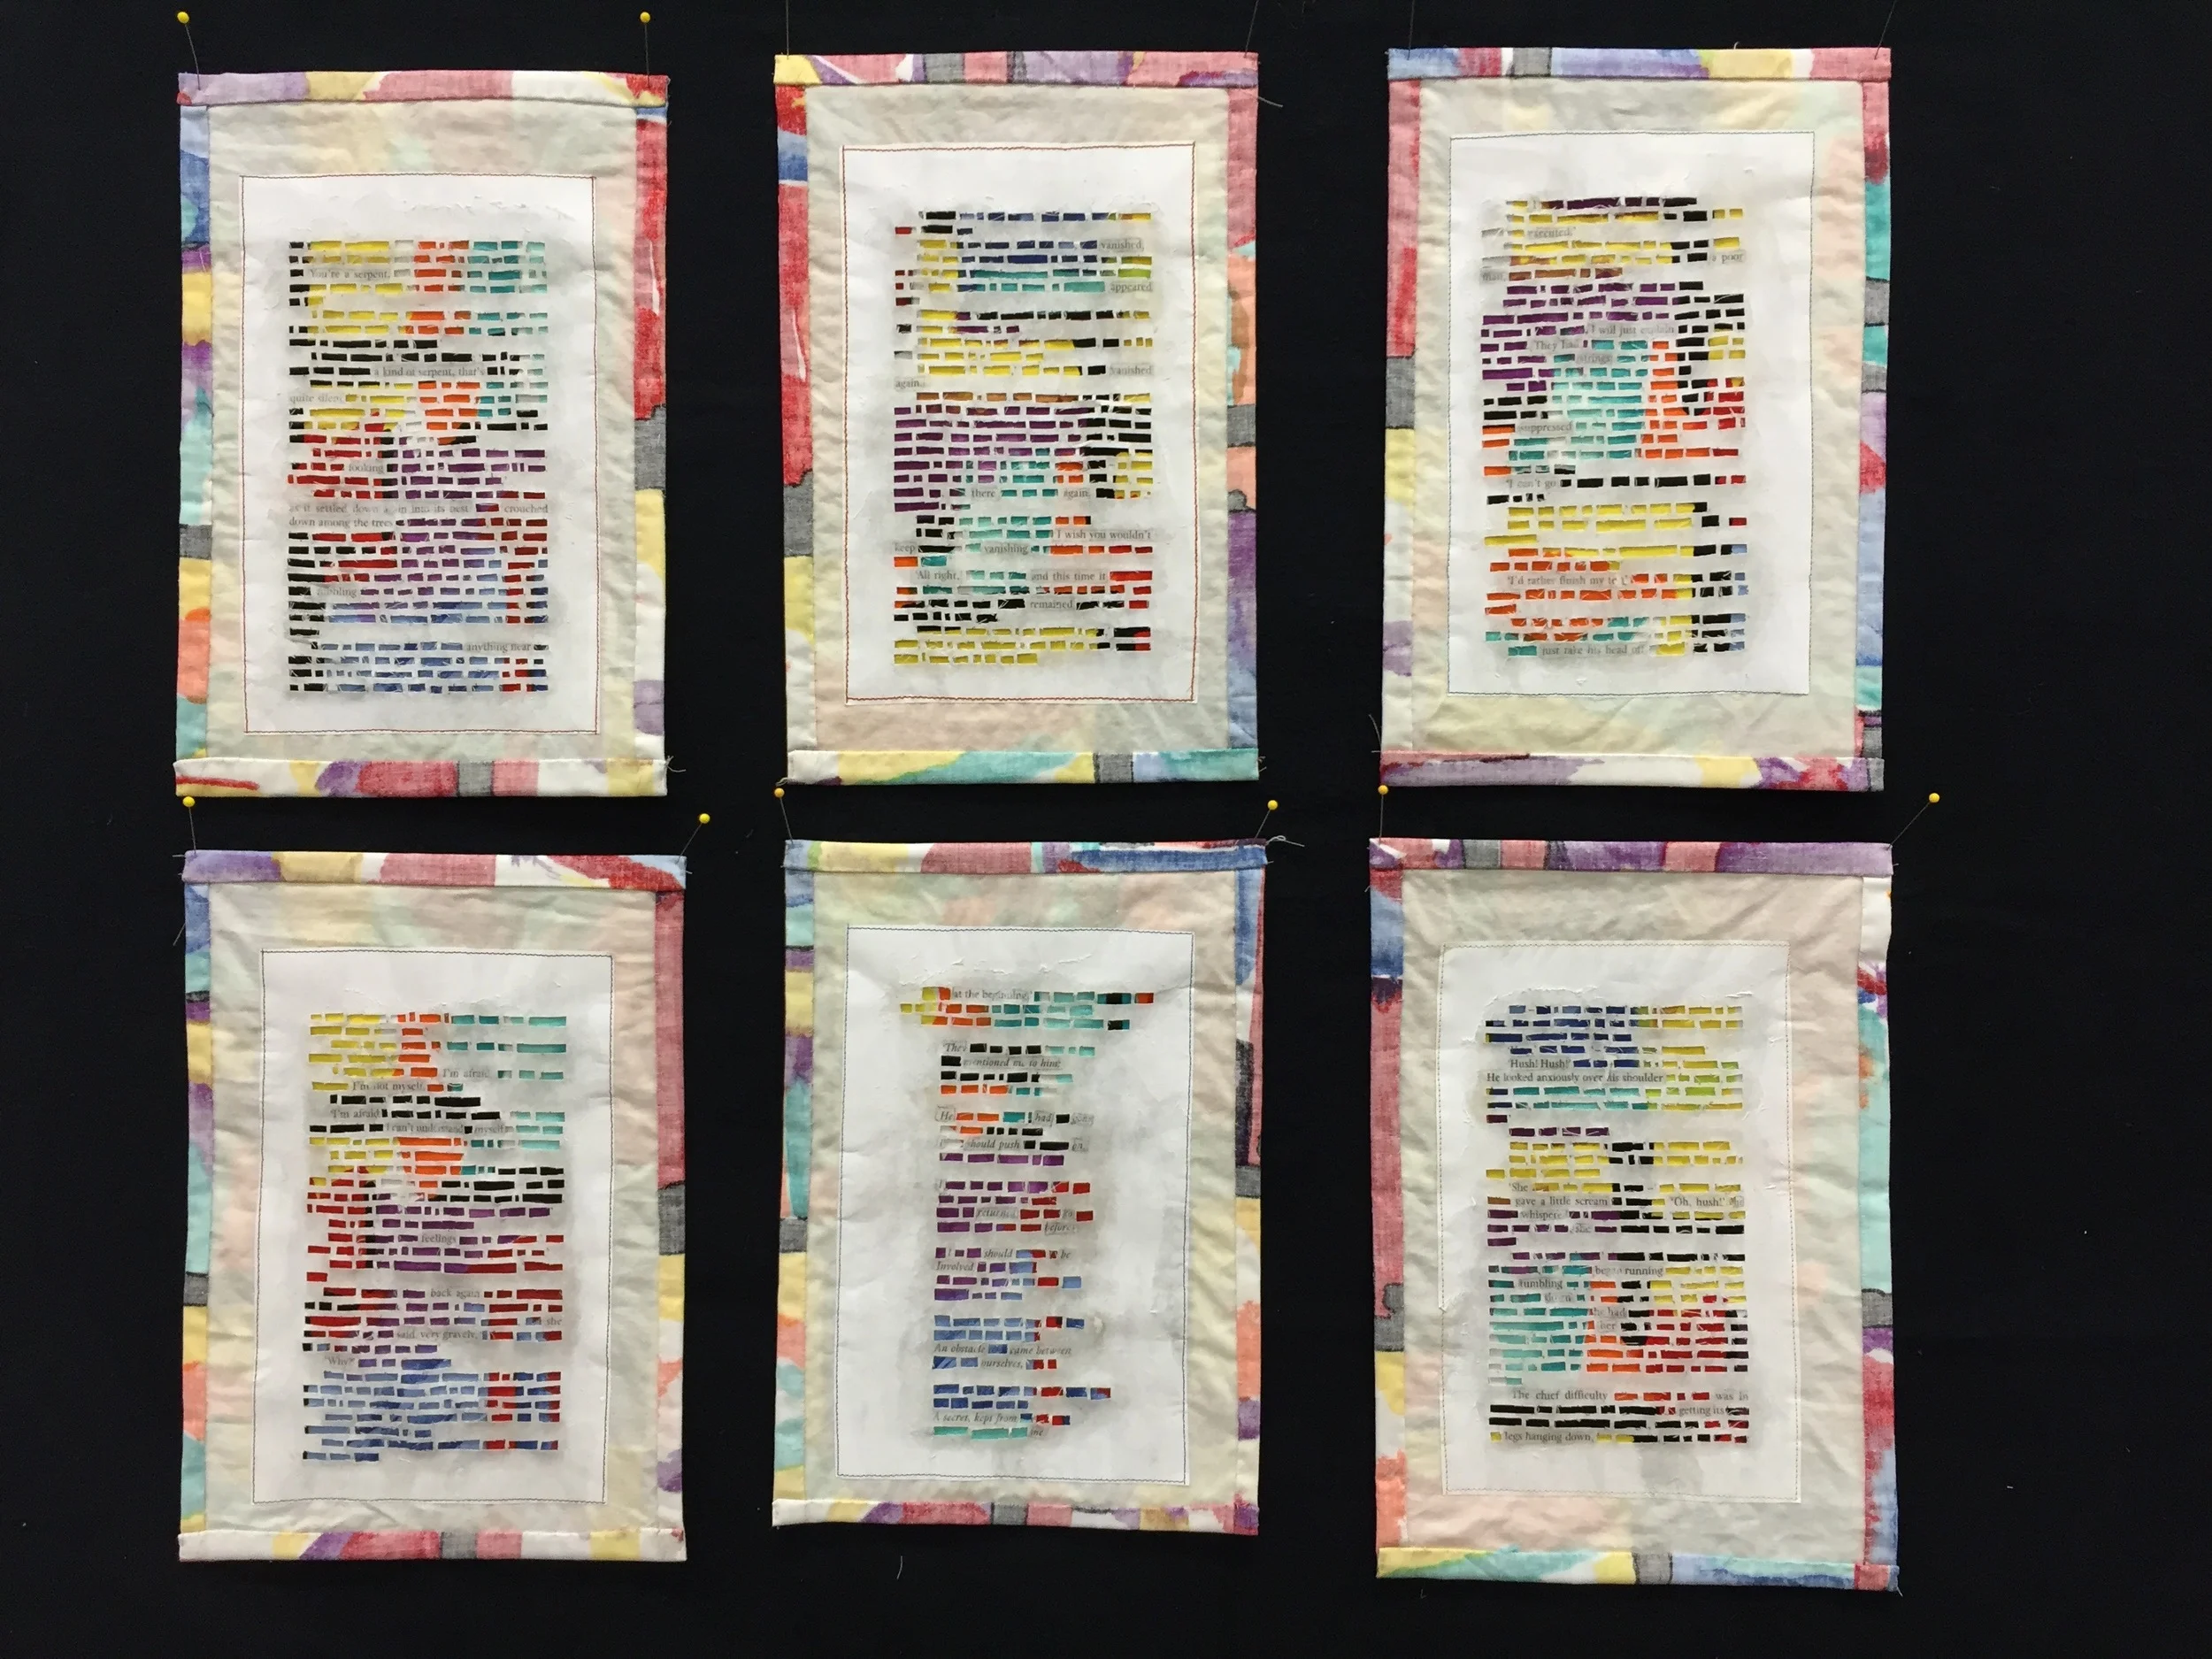 You're a serpent,
a kind of serpent, that's
quite silent
looking
as it settled down again into its nest crouched
down among the trees
anything near
vanished,
appeared
vanished
again.
there again,
I wish you wouldn't
keep vanishing
'All right, and this time it
remained
executed.'
a poor
man,
I will just explain
They had
strings
suppressed
'I can't go
'I'd rather finish my tea,'
just take his head off
I'm afraid
I'm not myself,
'I'm afraid
I can't understand myself
feelings
back again
she
said, very gravely,
'Why?'
at the beginning,'
They
mentioned me to him:
He had
should push on,
returned
before,
I should be
Involved
An obstacle came between
ourselves,
A secret, kept from
me.
'Hush! Hush!'
He looked anxiously over his shoulder
'She
gave a little scream 'Oh, hush!' the
whispered
began running
tumbling
down
she had
her
The chief difficulty was in
getting its
legs hanging down,